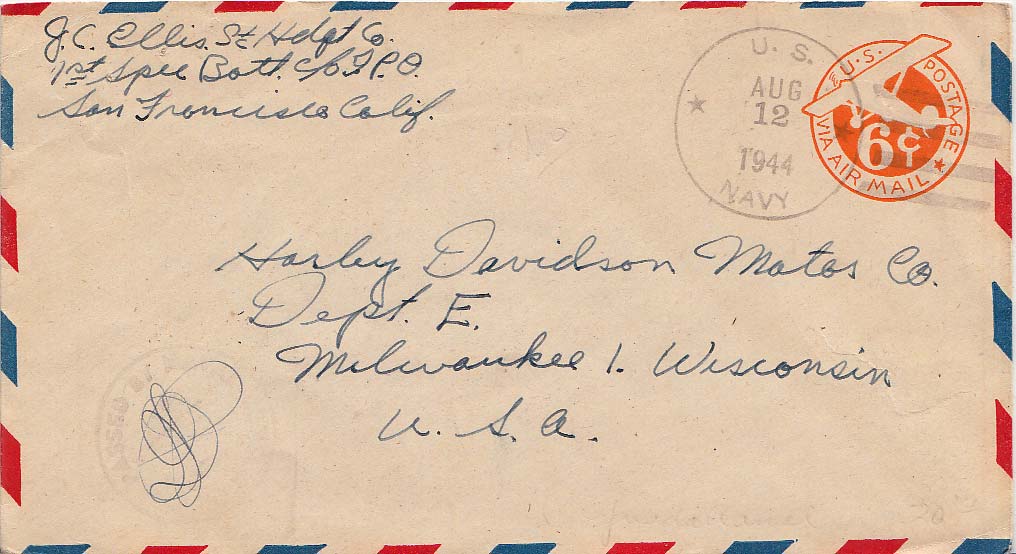 J.C. Ellis. St Hdqt Co.
1st Spec Batt. c/o F.P.O.
San Francisco Calif.
U. S.
AUG
12
1944
NAVY
U.S. POSTAGE
6¢
VIA AIR MAIL
Harley Davidson Motor Co.
Dept. E.
Milwaukee 1. Wisconsin
U. S. A.
PASSED BY